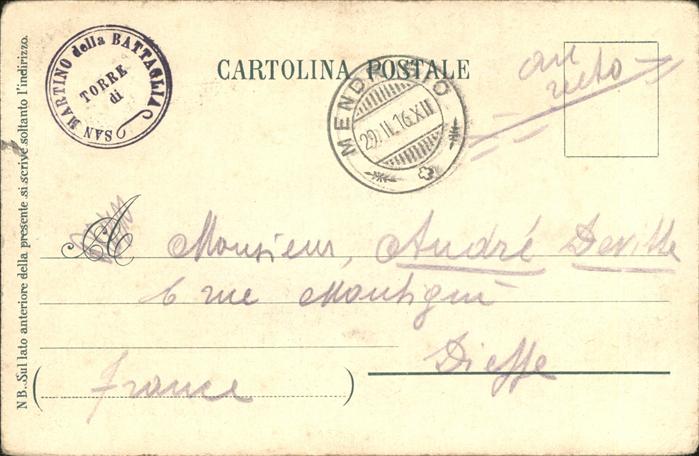 SAN MARTINO della BATTAGLIA
TORRE
di
CARTOLINA POSTALE
MENDRISIO
29.II.16.XII
au
recto
A Monsieur, André Deville
6 rue Montigni
Dieppe
(France)
NB. Sul lato anteriore della presente si scrive soltanto l'indirizzo.